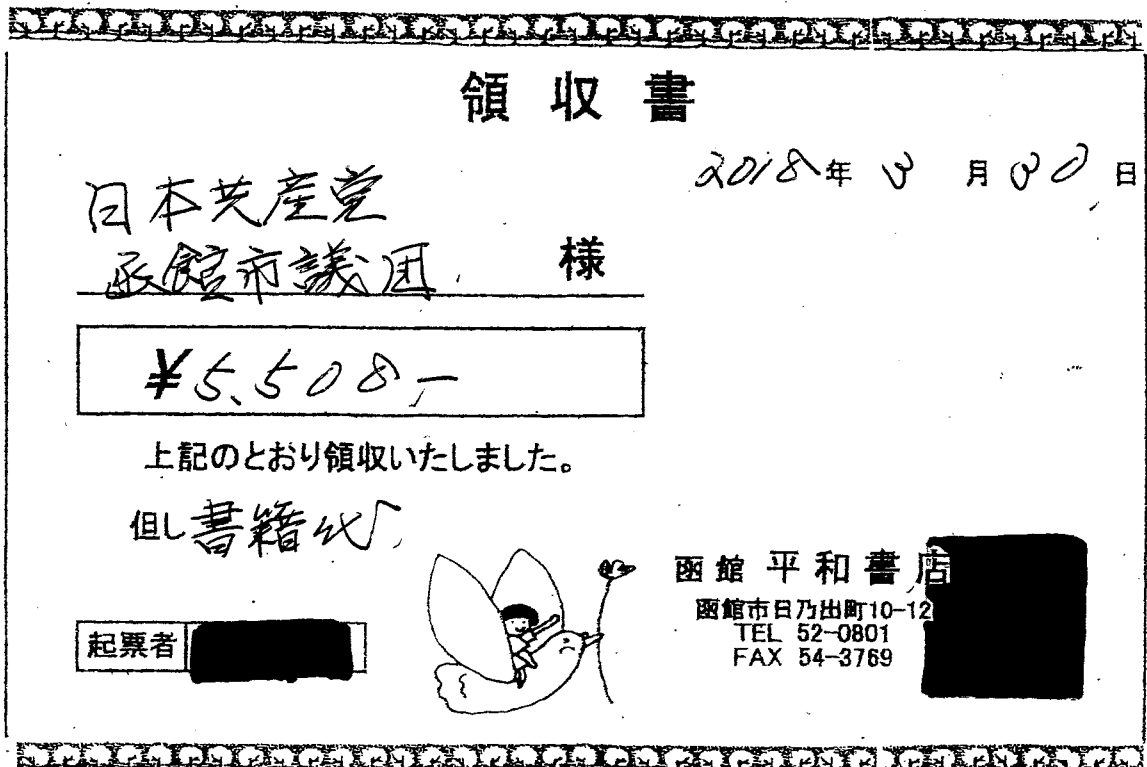 領収書
2018年 3月30日
日本共産党
函館市議団 様
¥5,508-
上記のとおり領収いたしました。
但し 書籍代
函館 平和書店
函館市日乃出町10-12
TEL 52-0801
FAX 54-3769
起票者